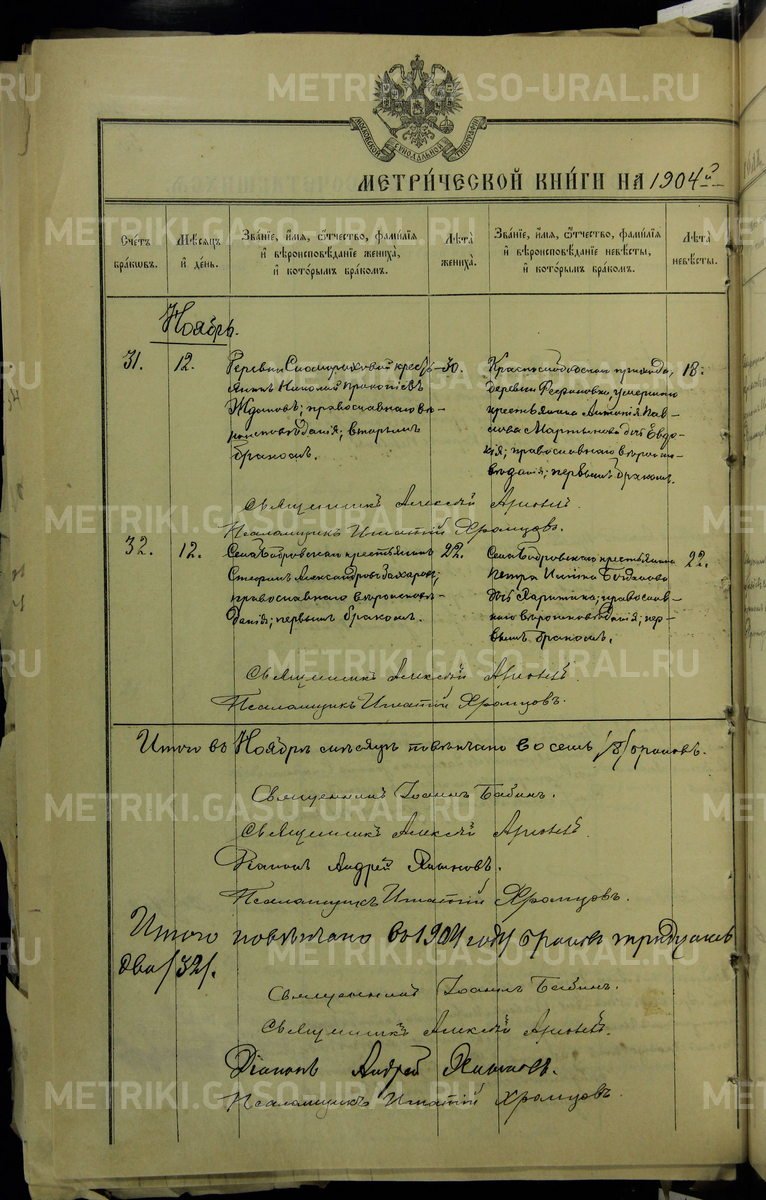 МЕТРИ́ЧЕСКОЙ КНИ́ГИ НА 1904й
Сче́тъ бра́ковъ.
Мѣ́сяцъ и҆ де́нь.
Зва́нїе, и҆́мя, ѻ҆́тчество, фамилїѧ
и҆ вѣроисповѣ́данїе жениха̀,
и҆ кото́рымъ бра́комъ.
Лѣ́та жениха̀.
Зва́нїе, и҆́мя, ѻ҆́тчество, фамилїѧ
и҆ вѣроисповѣ́данїе невѣ́сты,
и҆ кото́рымъ бра́комъ.
Лѣ́та невѣ́сты.
Ноябрь.
31.
12.
Деревни Скомороховой кресть-
янинъ Николай Прокопіевъ
Ждановъ; православнаго вѣ-
роисповѣданія; вторымъ
бракомъ.
30.
Краснослободскаго прихода,
деревни Ферфановки, умершаго
крестьянина Антонія Пав-
лова Мартынова дочь Евдо-
кія; православнаго вѣроиспо-
вѣданія; первымъ бракомъ.
18.
Священникъ Алексѣй
Псаломщикъ Игнатій Храмцовъ.
32.
12.
Села Бобровскаго крестьянинъ
Стефанъ Александровъ Захаровъ;
православнаго вѣроисповѣ-
данія; первымъ бракомъ.
22.
Села Бобровскаго крестьянина
Петра Богданова
дочь Харитина; православ-
наго вѣроисповѣданія; пер-
вымъ бракомъ.
22.
Священникъ Алексѣй
Псаломщикъ Игнатій Храмцовъ.
Итого въ Ноябрѣ мѣсяцѣ повѣнчано восемь /8/ браковъ.
Священникъ Іоаннъ Бабинъ.
Священникъ Алексѣй
Діаконъ Андрей
Псаломщикъ Игнатій Храмцовъ.
Итого повѣнчано въ 1904 году браковъ тридцать
два /32/.
Священникъ Іоаннъ Бабинъ.
Священникъ Алексѣй
Діаконъ Андрей
Псаломщикъ Игнатій Храмцовъ.
METRIKI.GASO-URAL.RU